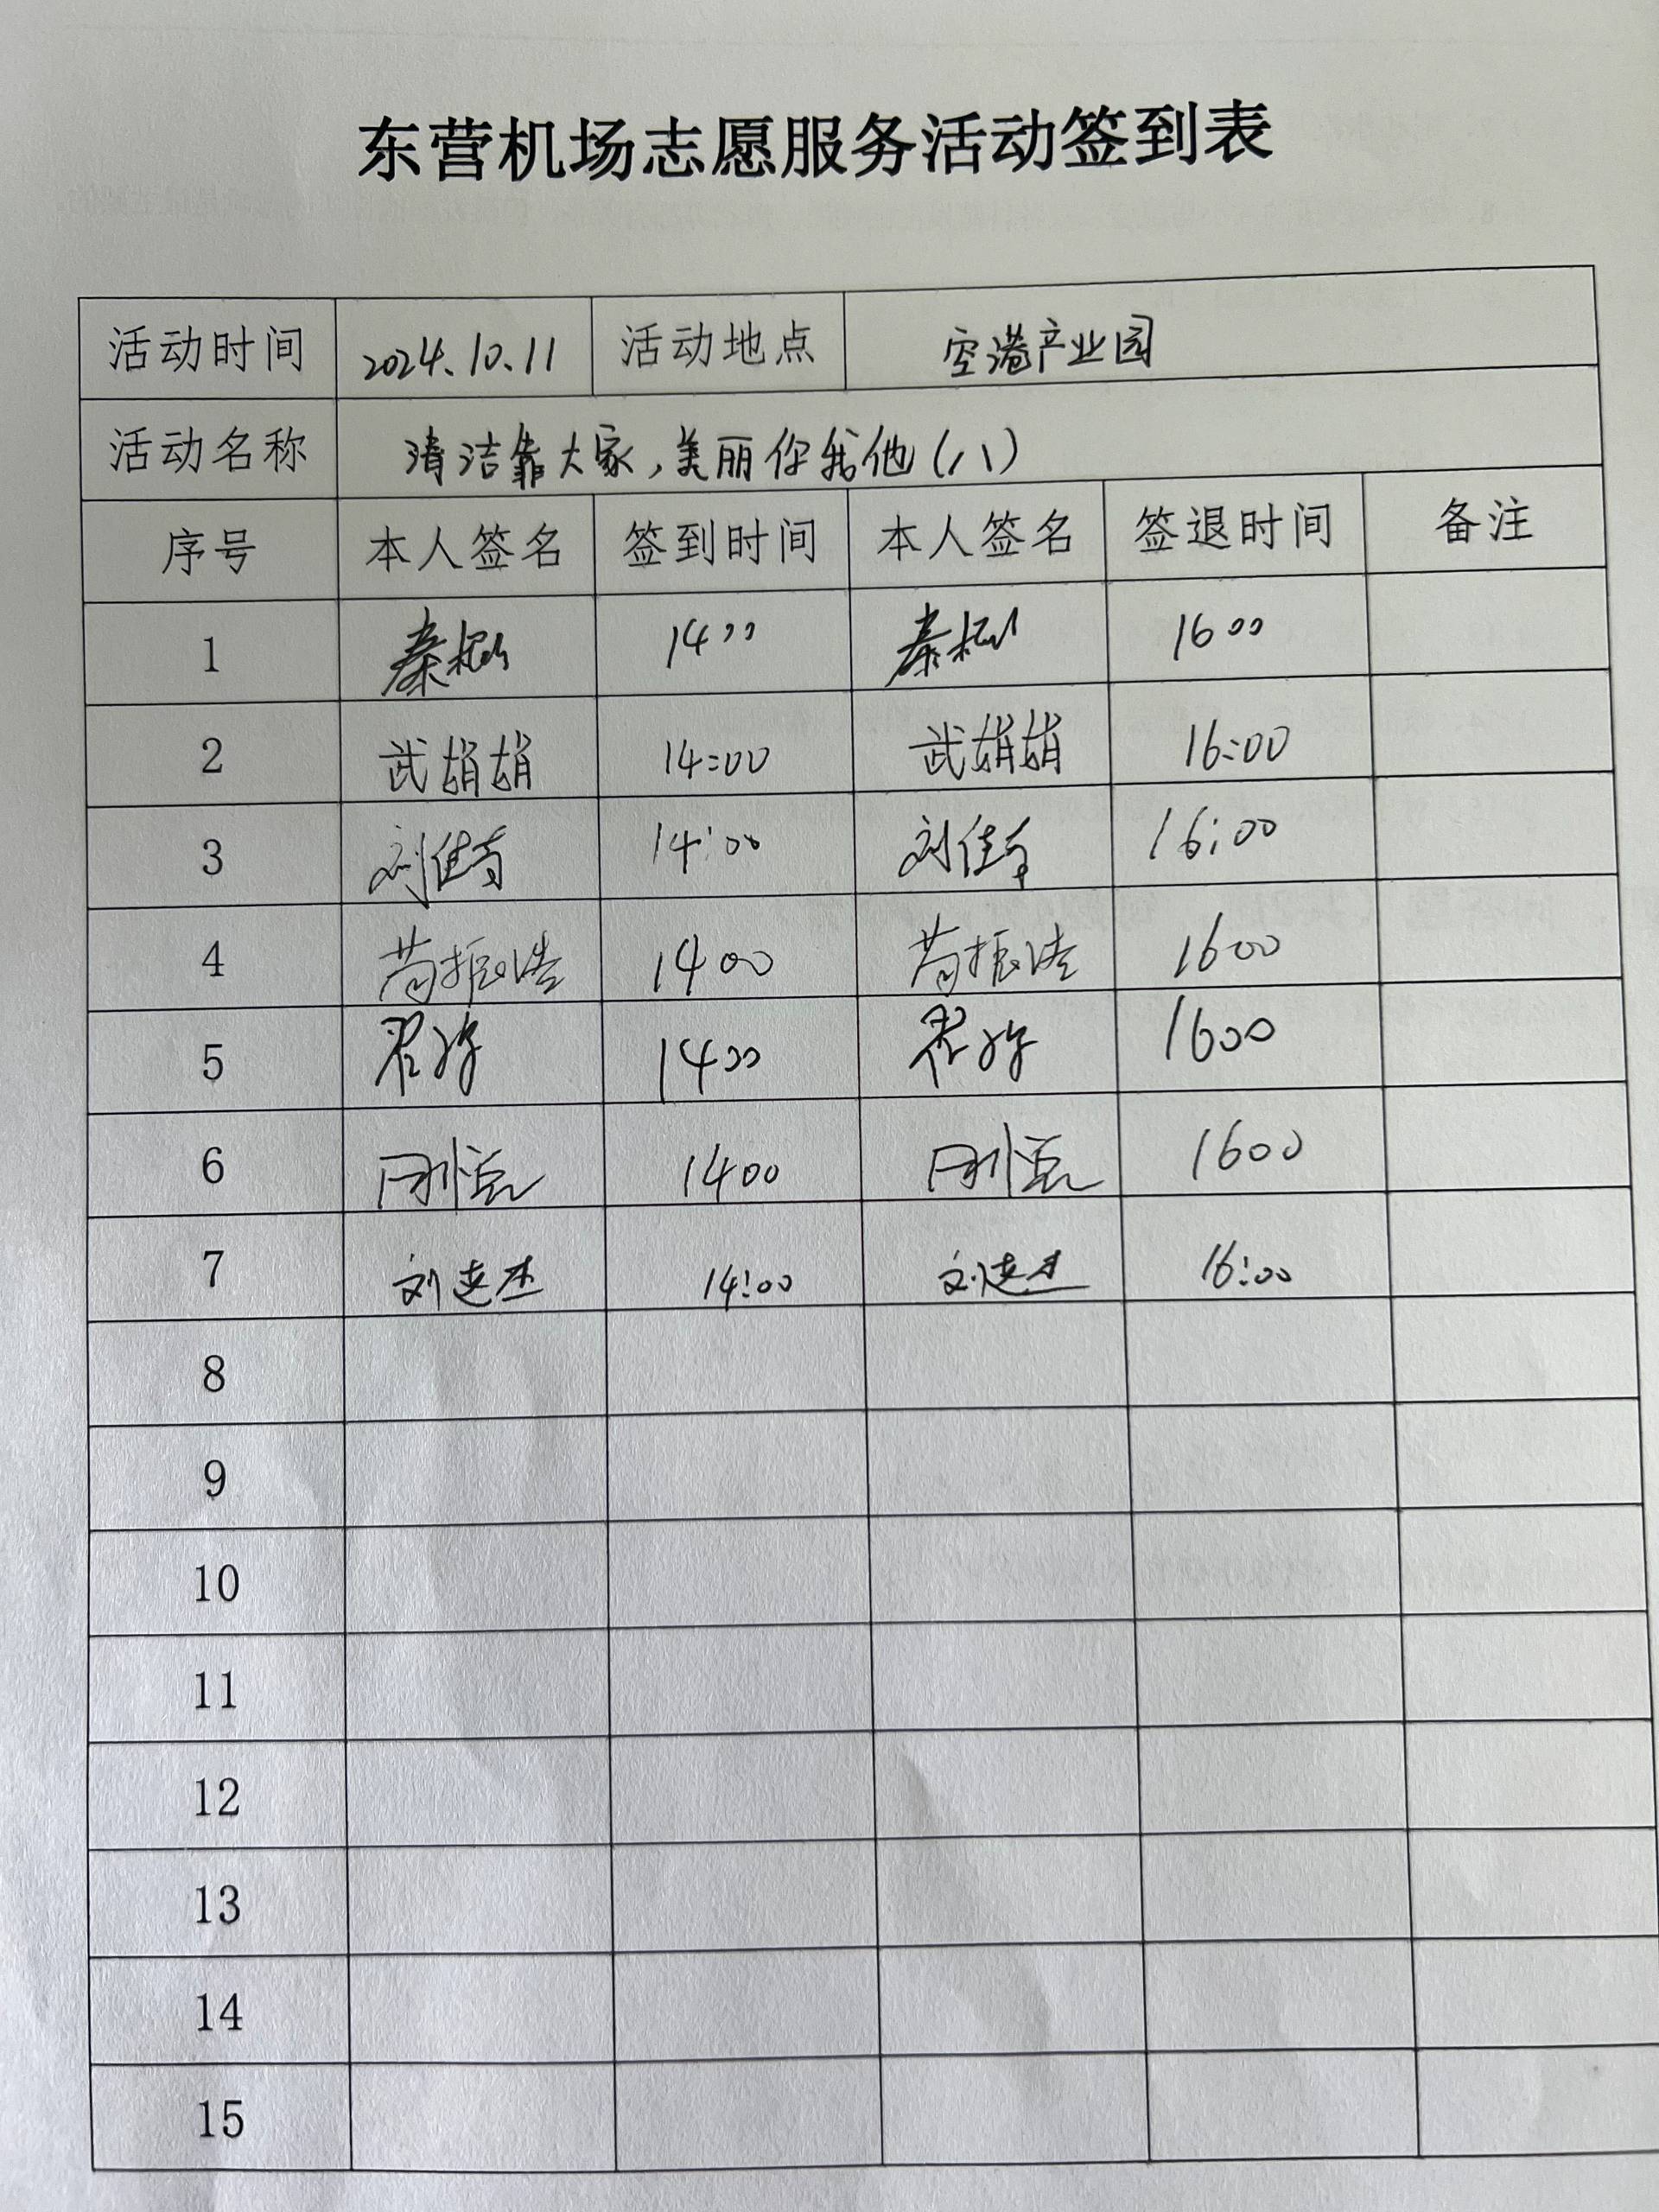 东营机场志愿服务活动签到表
活动时间 2024.10.11 活动地点 空港产业园
活动名称 清洁靠大家,美丽你我他(八)
序号 本人签名 签到时间 本人签名 签退时间 备注
1 秦 1400 秦 1600
2 武娟娟 14:00 武娟娟 16:00
3 刘佳奇 14:00 刘佳奇 16:00
4 苟振浩 1400 苟振浩 1600
5 1400 1600
6 1400 1600
7 刘 14:00 刘 16:00
8
9
10
11
12
13
14
15